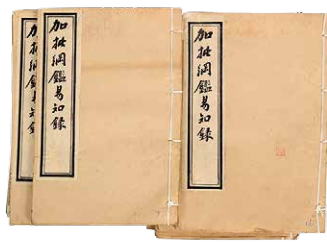 加批綱鑑易知錄
加批綱鑑易知錄
加批綱鑑易知錄